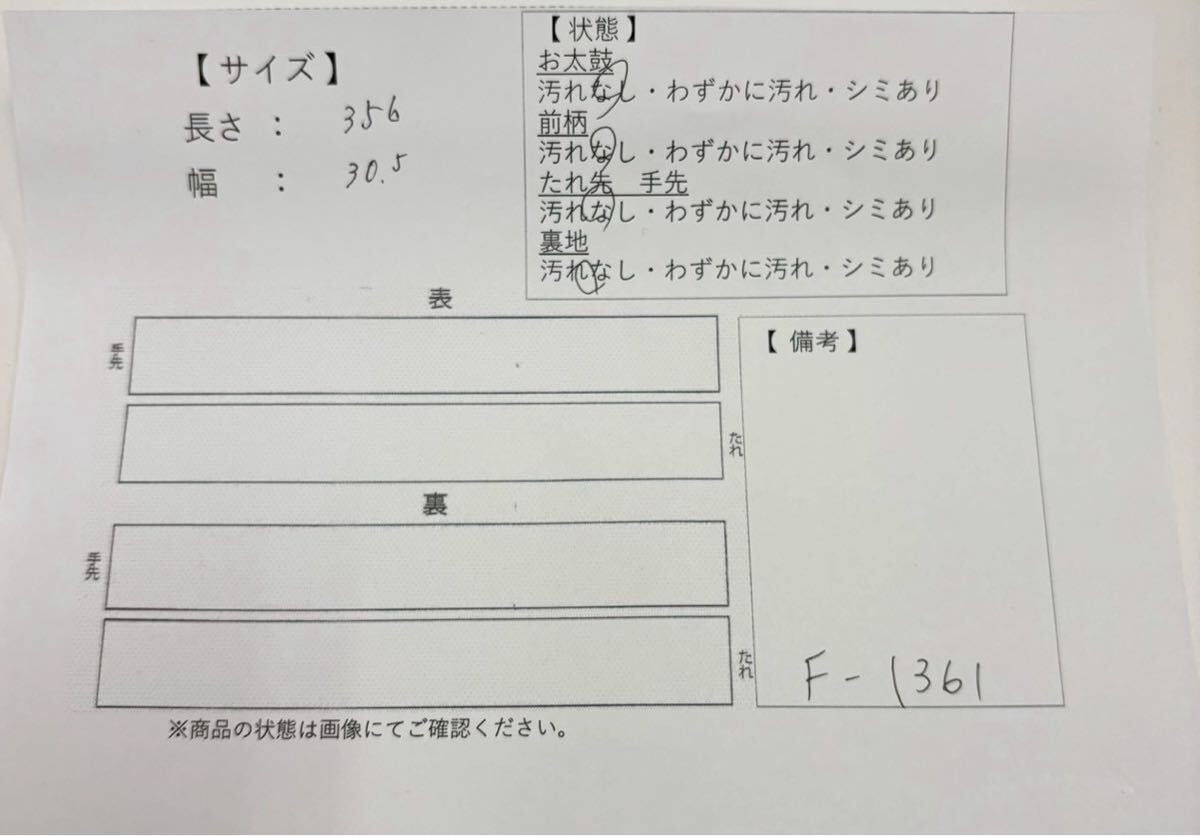 【サイズ】
長さ : 356
幅 : 30.5
【状態】
お太鼓
汚れなし・わずかに汚れ・シミあり
前柄
汚れなし・わずかに汚れ・シミあり
たれ先 手先
汚れなし・わずかに汚れ・シミあり
裏地
汚れなし・わずかに汚れ・シミあり
表
手先
たれ
裏
手先
たれ
【備考】
F-1361
※商品の状態は画像にてご確認ください。